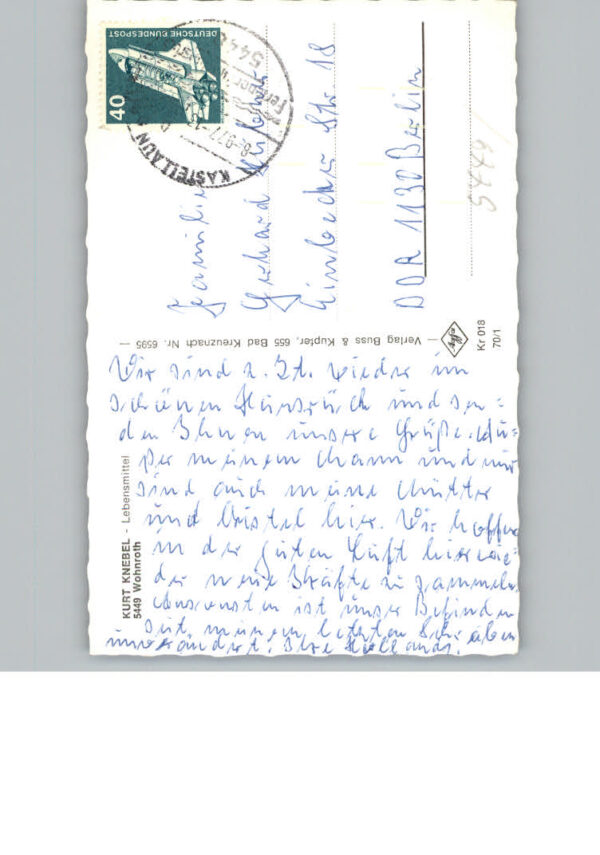 DEUTSCHE BUNDESPOST
40
KASTELLAUN
544
Familie
Gerhard
Einbecker Str. 18
DDR 1130 Berlin
5449
— Verlag Buss & Kupfer, 655 Bad Kreuznach Nr. 6595 —
Agfa
Kr 018
70/1
KURT KNEBEL - Lebensmittel
5449 Wohnroth
Wir sind z. Zt. wieder im
schönen Hunsrück und sen=
den Ihnen unsere Grüße. Au=
ßer meinem Mann und mir
sind auch meine Mutter
und Christel hier. Wir hoffen
in der guten Luft hier wie=
der neue Kräfte zu sammeln.
Ansonsten ist unser Befinden
seit meinem letzten Schreiben
unverändert. Ihre